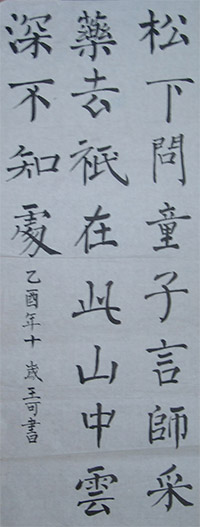 松下問童子言師采
藥去祗在此山中雲
深不知處
乙酉年十歲王可書